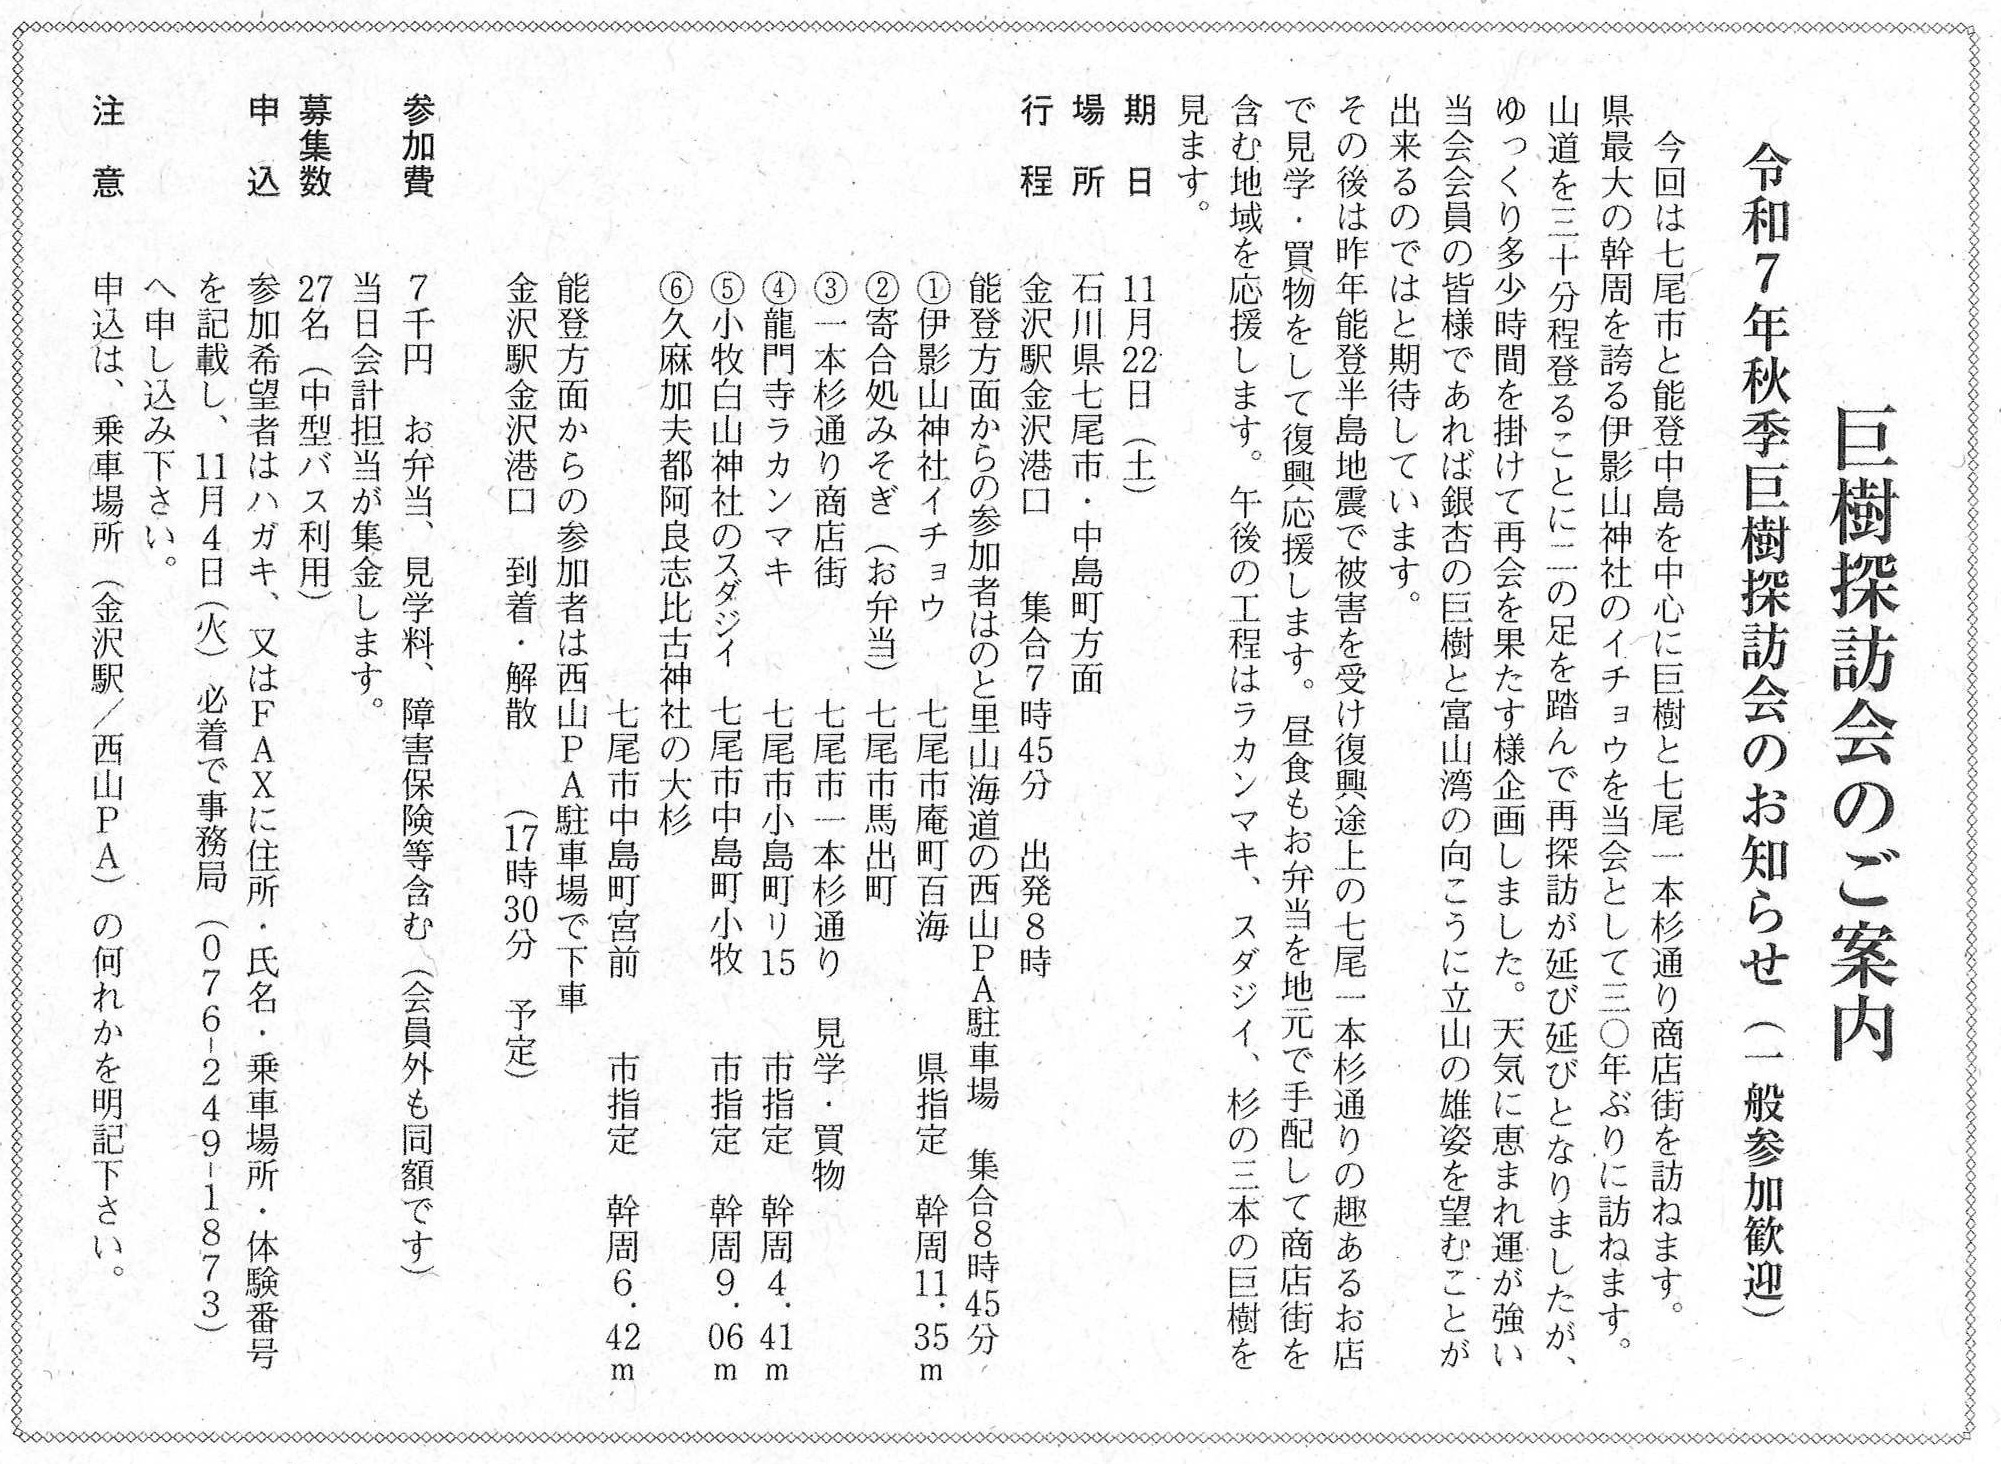 巨樹探訪会のご案内
令和7年秋季巨樹探訪会のお知らせ（一般参加歓迎）
今回は七尾市と能登中島を中心に巨樹と七尾一本杉通り商店街を訪ねます。
県最大の幹周を誇る伊影山神社のイチョウを当会として三〇年ぶりに訪ねます。
山道を三十分程登ることに二の足を踏んで再探訪が延び延びとなりましたが、
ゆっくり多少時間を掛けて再会を果たす様企画しました。天気に恵まれ運が強い
当会会員の皆様であれば銀杏の巨樹と富山湾の向こうに立山の雄姿を望むことが
出来るのではと期待しています。
その後は昨年能登半島地震で被害を受け復興途上の七尾一本杉通りの趣あるお店
で見学・買物をして復興応援します。昼食もお弁当を地元で手配して商店街を
含む地域を応援します。午後の工程はラカンマキ、スダジイ、杉の三本の巨樹を
見ます。
期　日　11月22日（土）
場　所　石川県七尾市・中島町方面
行　程　金沢駅金沢港口　集合7時45分　出発8時
能登方面からの参加者はのと里山海道の西山PA駐車場　集合8時45分
①伊影山神社イチョウ　七尾市庵町百海　県指定　幹周11.35m
②寄合処みそぎ（お弁当）七尾市馬出町
③一本杉通り商店街　七尾市一本杉通り　見学・買物
④龍門寺ラカンマキ　七尾市小島町リ15　市指定　幹周4.41m
⑤小牧白山神社のスダジイ　七尾市中島町小牧　市指定　幹周9.06m
⑥久麻加夫都阿良志比古神社の大杉
七尾市中島町宮前　市指定　幹周6.42m
能登方面からの参加者は西山PA駐車場で下車
金沢駅金沢港口　到着・解散　（17時30分　予定）
参加費　7千円　お弁当、見学料、障害保険等含む（会員外も同額です）
当日会計担当が集金します。
募集数　27名（中型バス利用）
申　込　参加希望者はハガキ、又はFAXに住所・氏名・乗車場所・体験番号
を記載し、11月4日（火）必着で事務局（076-249-1873）
へ申し込み下さい。
注　意　申込は、乗車場所（金沢駅／西山PA）の何れかを明記下さい。